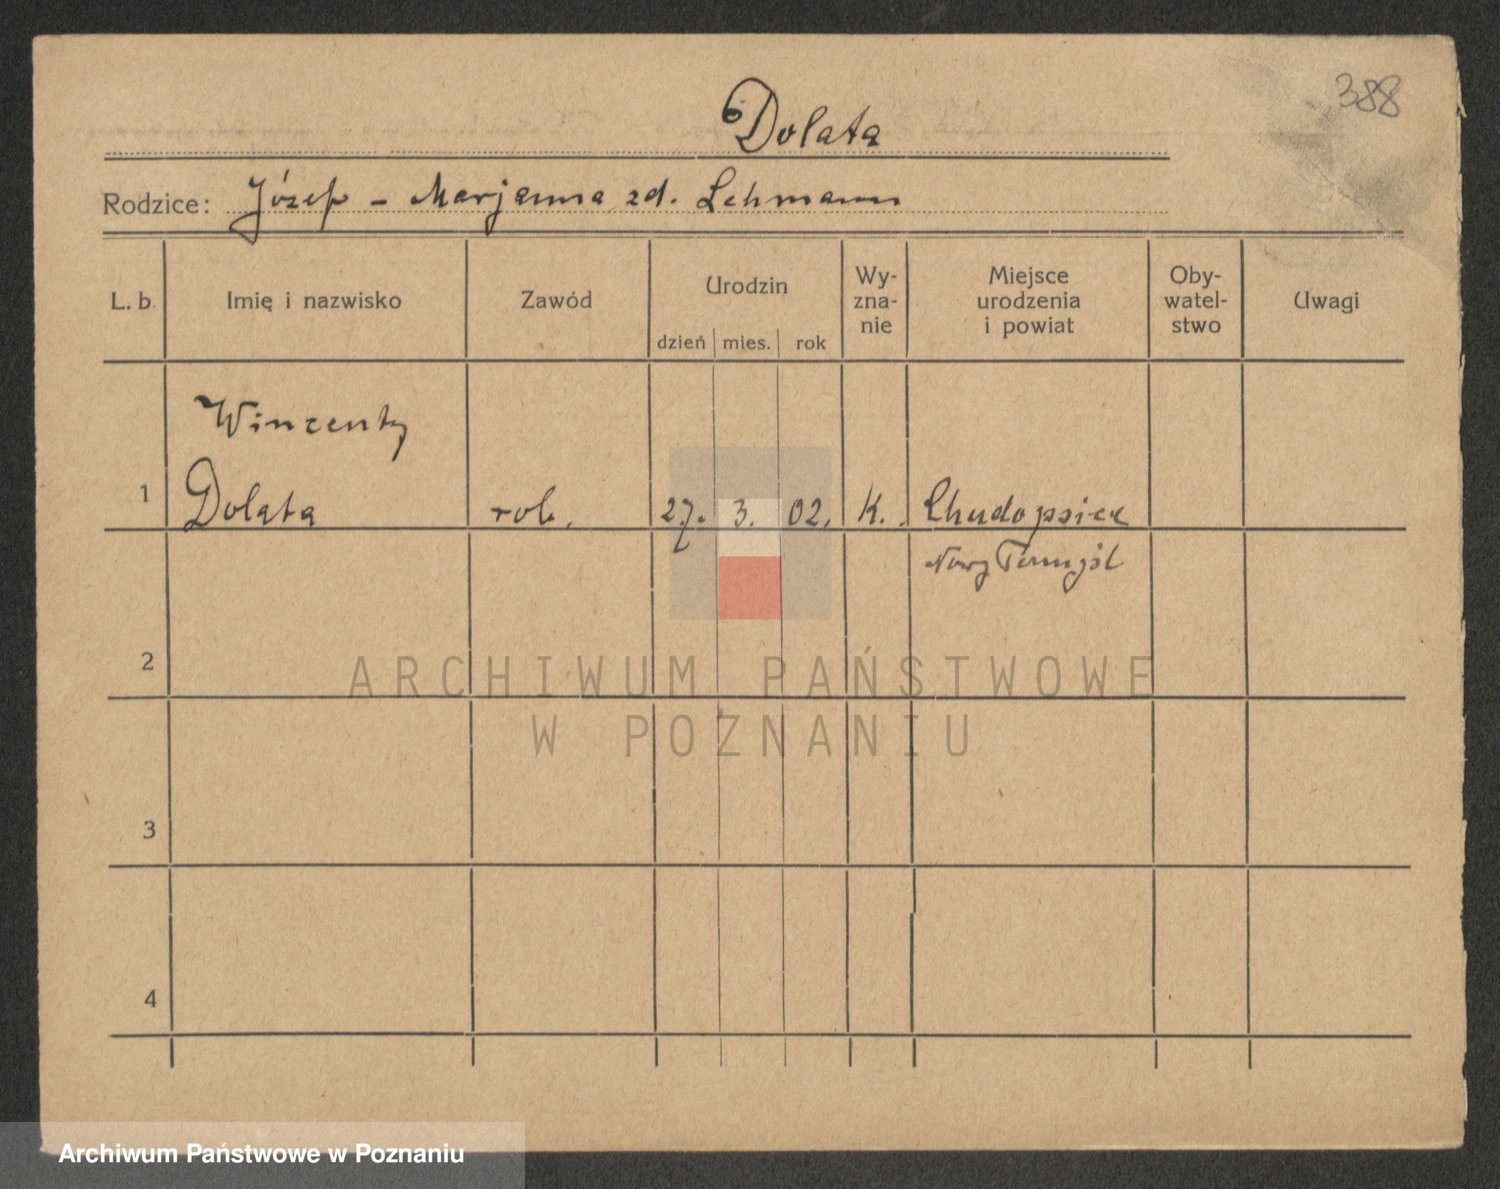 388
Dolata
Rodzice: Józef - Marjanna zd. Lehmann
L. b. Imię i nazwisko Zawód Urodzin Wy-zna-nie Miejsce urodzenia i powiat Oby-watel-stwo Uwagi
dzień mies. rok
Wincenty
1 Dolata rob. 27. 3. 02. K. Chudopsice
Nowy Tomyśl
2
ARCHIWUM PAŃSTWOWE
W POZNANIU
3
4
Archiwum Państwowe w Poznaniu